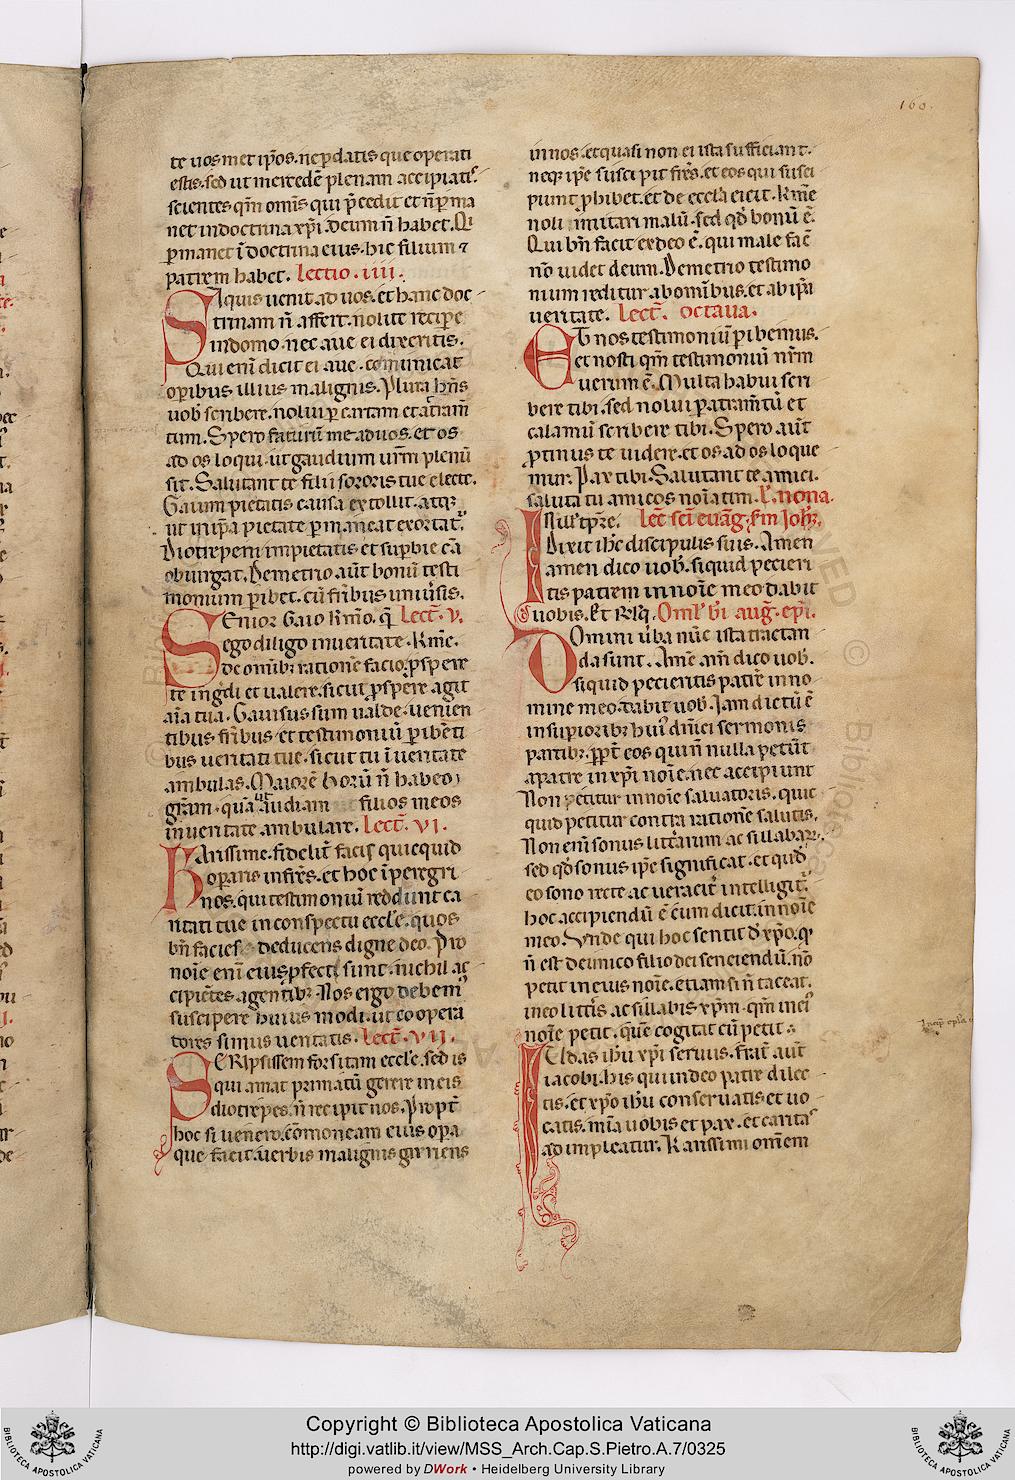 160.
te uos met ip̄os. ne ꝑdatis que operati
estis. sed ut mercedē plenam accipiatis.
scientes qm̄ omīs qui p̄cedit et ñ ꝑma
net in doctrina xp̄i .deum ñ habet. Qi
ꝑmanet ī doctrina eius. hic filium ⁊
patrem habet. lectio. iiii.
Siquis uenit ad uos. et hanc doc
trinam ñ affert. nolite recipe
in domo. nec aue ei dixeritis.
Qui enī dicit ei aue. comunicat
opibus illius malignis. Plura hn̄s
uob̄ scribere. nolui ꝑ cartam et atram̄
tum. Spero faturū me ad uos. et os
ad os loqui. ut gaudium ur̄m plenū
sit. Salutant te filii sororis tue electe.
Gaium pietatis causa extollit. atq;
ut in ip̄a pietate ꝑmaneat exortat᷒.
Diotrepem impietatis et suꝑbie cā
obiurgat. Demetrio. aut̄ bonū testi
monium ꝑibet. cū fr̄ibus uniuersis.
SEnior Gaio kr̄mo. q̄ Lect̄. v.
ego diligo in ueritate. Kr̄me.
de omib; ratione facio ꝓspere
te ingrēdi et ualere. sicut ꝓspere agit
aīa tua. Gauisus sum ualde. uenien
tibus fr̄ibus. et testimoniū ꝑibēti
bus ueritati tue. sicut tu ī ueritate
ambulas. Maiorē horū ñ habeo
gr̄am. quā ut audiam filios meos
in ueritate ambulare. Lect̄. VI.
Karissime. fidelit̄ facis quicquid
oꝑaris in fr̄es. et hoc ī peregri
nos. qui testimoniū reddunt ca
ritati tue in conspectu eccl̄e. quos
bn̄ facies deducens digne deo. Pro
noīe enī eius ꝓfecti sunt. nichil ac
cipiētes a gentib;. Nos ergo debem᷒
suscipere huius modi. ut coopera
tores simus ueritatis. Lect̄. VII.
SCRipsissem forsitam eccl̄e. sed is
qui amat primatū gerere in eis
diotrepes. ñ recipit nos. Propt̄
hoc si uenero. cōmoneam eius oꝑa
que facit. uerbis malignis garriens
in nos. et quasi non ei ista sufficiant.
neq; ip̄e suscipit fr̄es. et eos qui susci
piunt ꝓhibet. et de eccl̄a eicit. Kr̄me
noli imitari malū. sed qd̄ bonū ē.
Qui bn̄ facit ex deo ē. qui male fac̄
nō uidet deum. Demetrio testimo
nium redditur ab omībus. et ab ip̄a
ueritate. Lect̄. octaua.
Et nos testimoniū ꝑibemus.
et nosti qm̄ testimoniū nr̄m
uerum ē. Multa habui scri
bere tibi. sed nolui ꝑ atram̄tū et
calamū scribere tibi. Spero aut̄
ꝓtinus te uidere. et os ad os loque
mur. Pax tibi. Salutant te amici.
saluta tu amicos noīatim. L̄. nona.
In ill̄ tp̄re. Lec̄ sc̄i euāg. s̄m Joh̄.
Dixit ih̄c discipulis suis. Amen
amen dico uob̄. si quid pecieri
tis patrem in noīe meo dabit
uobis. Et relq̄. Oml̄ bī aug̃. ep̄i.
Domini ūba nūc ista tractan
da sunt. Amē am̄ dico uob̄.
si quid pecieritis patrē in no
mine meo. dabit uob̄. Iam dictū ē
in supiorib; hui᷒ dn̄ici sermonis
partib;. ꝓpt̄ eos qui ñ nulla petūt
a patre in xp̄i noīe. nec accipiunt
Non petitur in noīe saluatoris. quic
quid petitur contra rationē salutis.
Non enī sonus litt̄arum ac sillabar;.
sed qd̄ sonus ip̄e significat. et quod
eo sono recte ac ueracit̄ intelligit᷒.
hoc accipiendū ē cum dicit. in noīe
meo. Vnde qui hoc sentit d̄ xp̄o. qd̄
ñ est de unico filio dei senciendū. nō
petit in eius noīe. etiam si ñ taceat.
in eo litt̄is ac sillabis xp̄m. qm̄ in ei᷒
noīe petit. quē cogitat cū petit.
IUdas ih̄u xp̄i seruus. frat̄ aut̄
iacobi. his qui in deo patre dilec
tis. et xp̄o ih̄u conseruatis et uo
catis. mīa uobis et pax. et caritas
adimpleatur. Karissimi omnem
Copyright © Biblioteca Apostolica Vaticana
http://digi.vatlib.it/view/MSS_Arch.Cap.S.Pietro.A.7/0325
powered by DWork • Heidelberg University Library
BIBLIOTECA APOSTOLICA VATICANA
BIBLIOTECA APOSTOLICA VATICANA